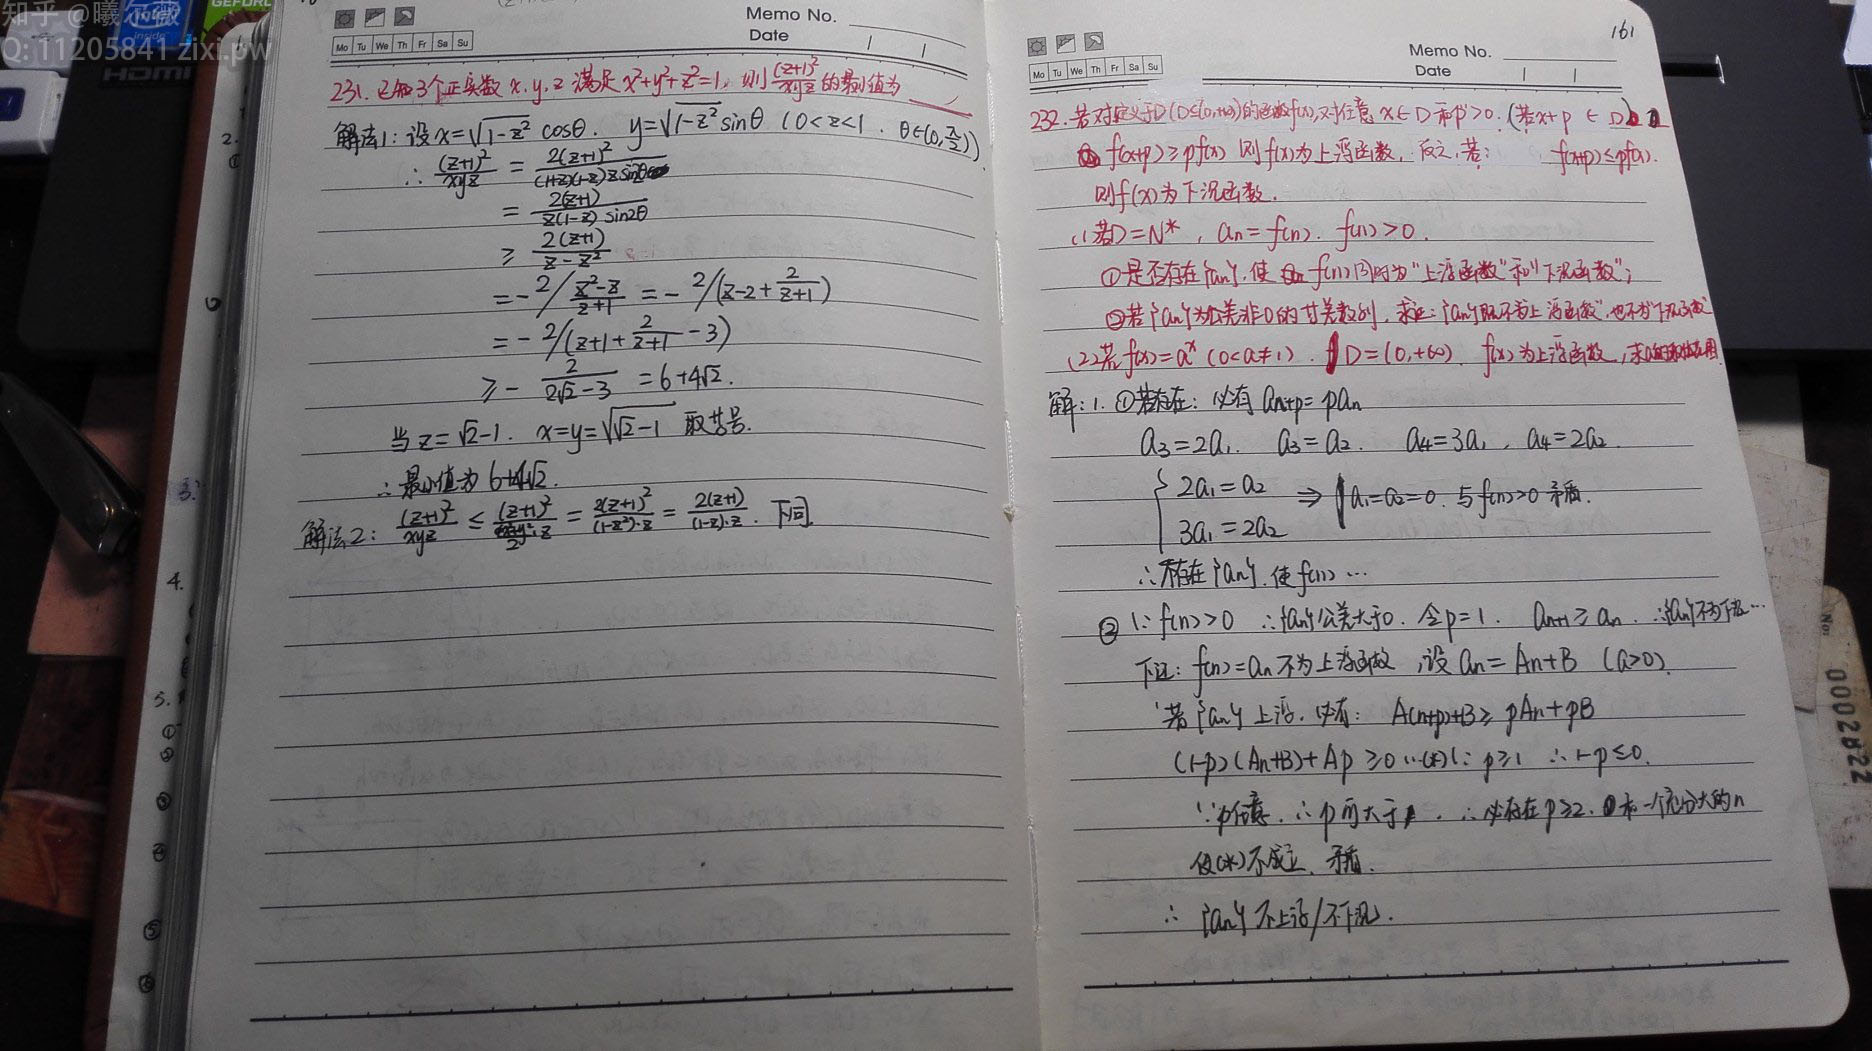 知乎 @曦尔薇
Q: 11205841 zixi.pw
intel
inside
GEFORC
HDMI
Memo No.
Date
Mo Tu We Th Fr Sa Su
231. 已知3个正实数 x, y, z 满足 x²+y²+z²=1, 则 (z+1)²/xyz 的最小值为
解法1: 设 x=√(1-z²) cosθ. y=√(1-z²) sinθ (0<z<1. θ∈(0, π/2))
∴ (z+1)²/xyz = 2(z+1)²/(1+z)(1-z)z sin2θ
= 2(z+1)/z(1-z) sin2θ
≥ 2(z+1)/z-z²
= - 2/(z²-z/z+1) = - 2/(z-2+2/z+1)
= - 2/(z+1+2/z+1 -3)
≥ - 2/2√2-3 = 6+4√2.
当 z=√2-1. x=y=√(√2-1) 取等号.
∴ 最小值为 6+4√2.
解法2: (z+1)²/xyz ≤ (z+1)²/x²+y²/2·z = 2(z+1)²/(1-z²)·z = 2(z+1)/(1-z)·z. 下同.
2.
①
3.
4.
5.
①
②
③
④
⑤
⑥
161
Memo No.
Date
Mo Tu We Th Fr Sa Su
232. 若对定义于D(D⊆(0,+∞))的函数f(x), 对任意 x∈D 和 p>0. (若x+p ∈ D)
f(x+p)≥pf(x) 则f(x)为上浮函数, 反之, 若: f(x+p)≤pf(x).
则f(x)为下沉函数.
(1)若D=N*, an=f(n). f(n)>0.
①是否存在{an}, 使 f(n)同时为"上浮函数"和"下沉函数";
②若{an}为公差非0的等差数列, 求证: {an}既不为"上浮函数", 也不为"下沉函数"
(2)若f(x)=aˣ (0<a≠1). D=(0,+∞). f(x)为上浮函数, 求a的取值范围
解: 1. ①若存在: 必有 an+p=pan
a3=2a1. a3=a2. a4=3a1, a4=2a2.
{ 2a1=a2
3a1=2a2 ⇒ a1=a2=0. 与f(n)>0 矛盾.
∴不存在{an}, 使f(n)…
② ∵f(n)>0 ∴{an}公差大于0. 令p=1. an+1≥an. ∴{an}不为下沉…
下证: f(n)=an不为上浮函数, 设 an=An+B (a>0).
若{an}上浮, 必有: A(n+p)+B≥pAn+pB
(1-p)(An+B)+Ap≥0 …(*) ∵p≥1 ∴1-p≤0.
∵p任意, ∴p可大于1. ∴必存在p≥2. 和一个充分大的n
使(*)不成立, 矛盾.
∴ {an}不上浮/不下沉.
No:
0002822